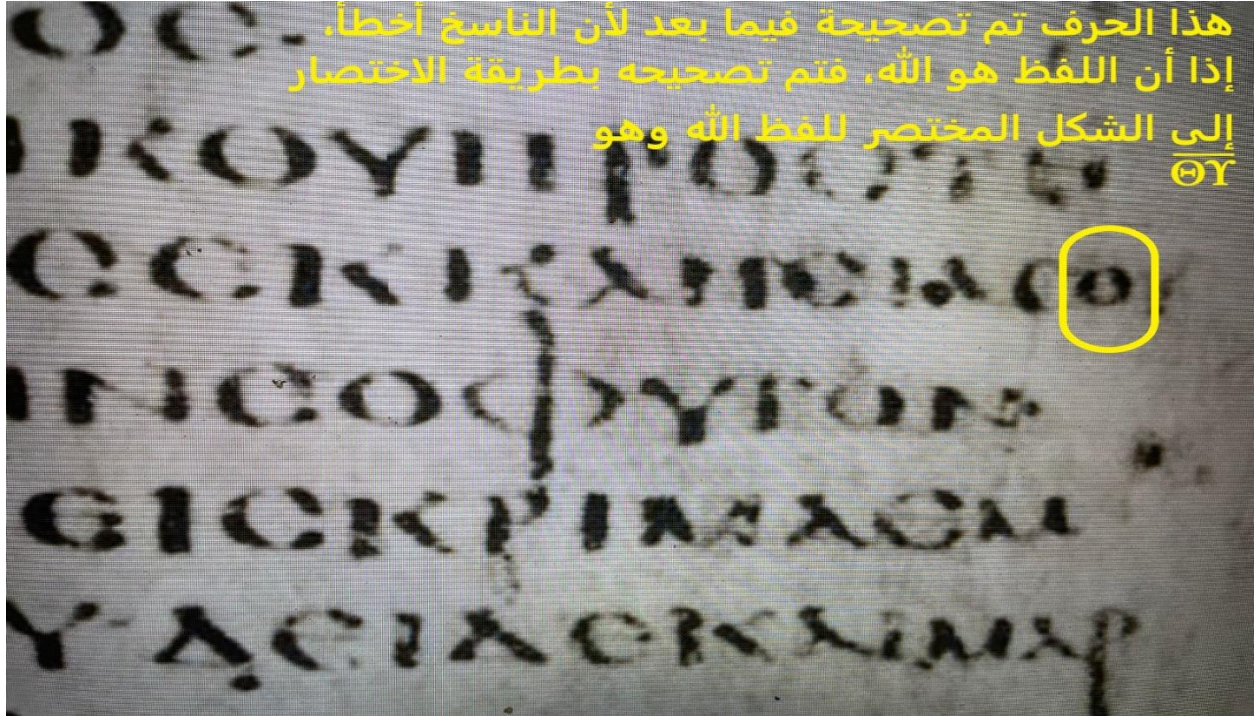 هذا الحرف تم تصحيحة فيما بعد لأن الناسخ أخطأ،
إذا أن اللفظ هو الله، فتم تصحيحه بطريقة الاختصار
إلى الشكل المختصر للفظ الله وهو
Θ̅Υ̅
ΟϹ·
ΙΚΟΥΠΡΟϹΤΗ
ϹΕΚΚΛΗϹΙΑϹΟ
ΝΕΟΦΥΤΟΝ
ΕΙϹΚΡΙΜΑΕΜ
ΥΔΕΙΔΕΚΑΙΜΑΡ